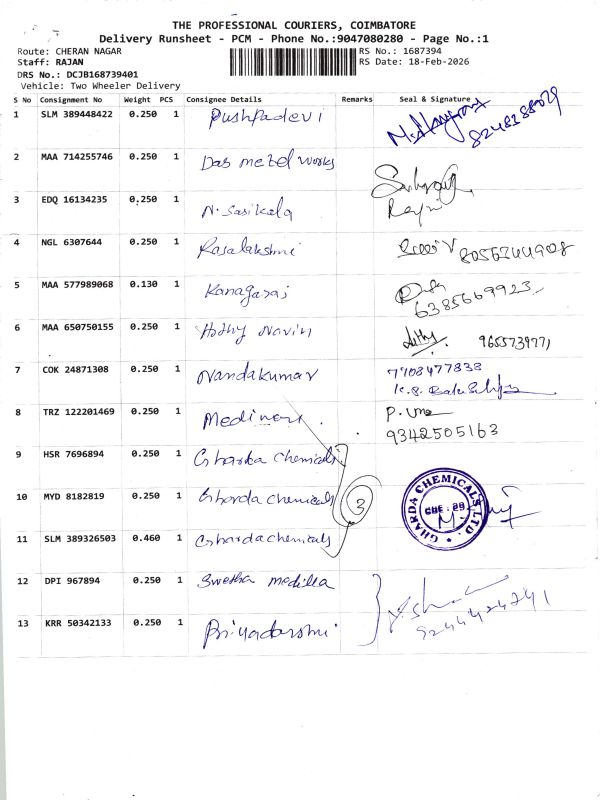 THE PROFESSIONAL COURIERS, COIMBATORE
Delivery Runsheet - PCM - Phone No.:9047080280 - Page No.:1
Route: CHERAN NAGAR
Staff: RAJAN
DRS No.: DCJB168739401
Vehicle: Two Wheeler Delivery
RS No.: 1687394
RS Date: 18-Feb-2026
S No Consignment No Weight PCS Consignee Details Remarks Seal & Signature
1 SLM 389448422 0.250 1 Pushpadevi 8248388029
2 MAA 714255746 0.250 1 Das metel works
3 EDQ 16134235 0.250 1 N. Sasikala
4 NGL 6307644 0.250 1 Rasalakshmi 8056344908
5 MAA 577989068 0.130 1 Kanagaraj 6385669923
6 MAA 650750155 0.250 1 965573977,
7 COK 24871308 0.250 1 Nandakumar 7708477838
8 TRZ 122201469 0.250 1 P. Uma
9342505163
9 HSR 7696894 0.250 1 Gharda chemicals
10 MYD 8182819 0.250 1 Gharda chemicals 3 GHARDA CHEMICALS LTD.
11 SLM 389326503 0.460 1 Gharda chemicals
12 DPI 967894 0.250 1 Swetha
13 KRR 50342133 0.250 1 Priyadarshni 9244424741